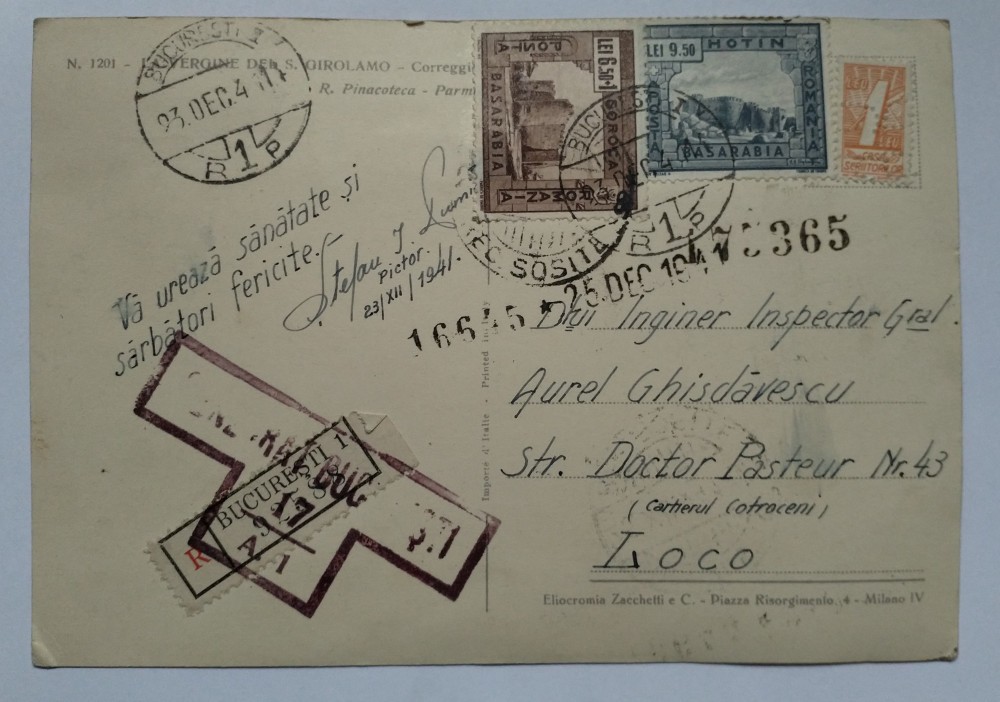 N. 1201 - VERGINE DEL S. GIROLAMO - Correggi
R. Pinacoteca - Parm
BUCUREȘTI 1
23.DEC.4
R 1 P
POȘTA
LEI 6.50+1
SOROCA
BASARABIA
ROMANIA
LEI 9.50
HOTIN
POȘTA
ROMANIA
BASARABIA
LEU
1
LEU
R 1 P
SOSITE
25.DEC.1941
16645
365
Vă urează sănătate și
sărbători fericite.-
Ștefan
Pictor.
23/XII/1941.
D-lui Inginer Inspector Gral.
Aurel Ghisdăvescu
Str. Doctor Pasteur Nr. 43
(Cartierul Cotroceni)
Loco
R
BUCUREȘTI 1
A 1
Importé d'Italie - Printed in Italy
Eliocromia Zacchetti e C. - Piazza Risorgimento, 4 - Milano IV